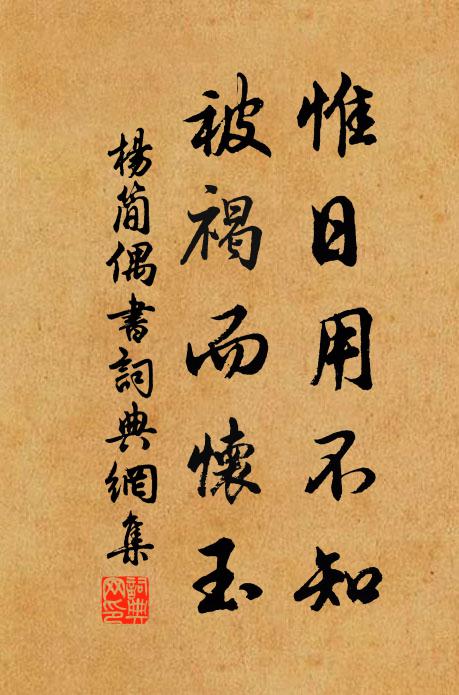 惟日用不知
被褐而懷玉
楊簡偶書詞典網集
詞典
网印